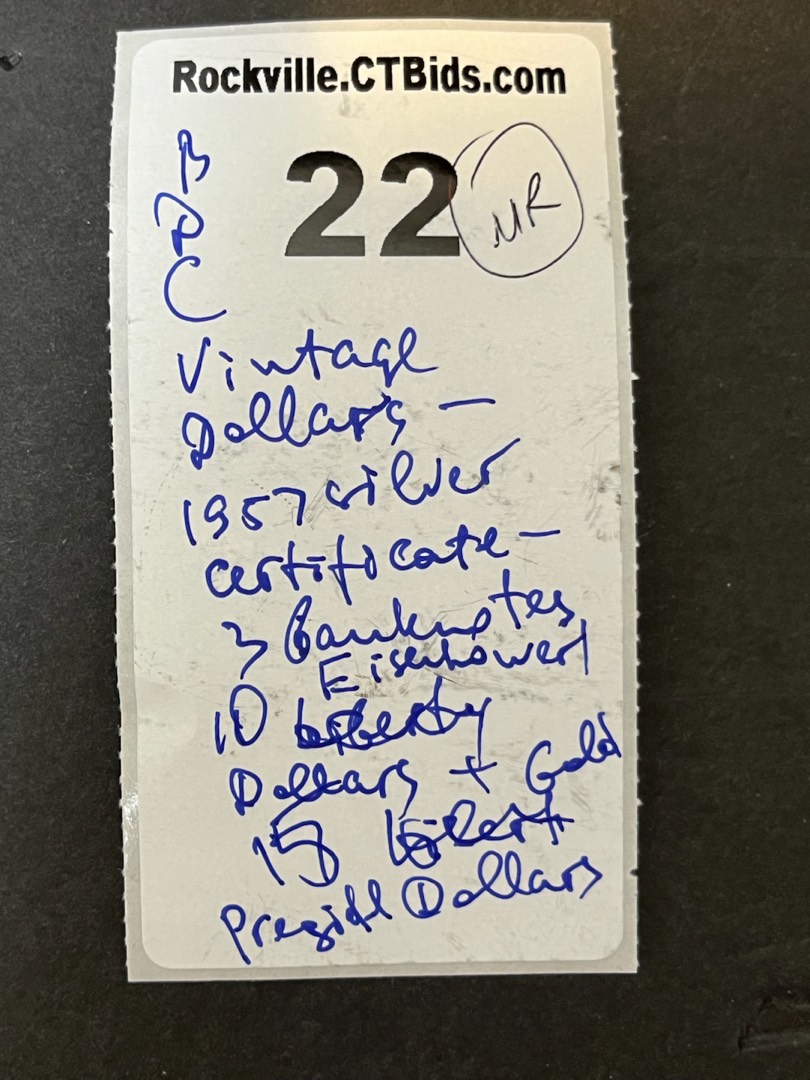 Rockville.CTBids.com
B
22
MR
D
C
Vintage
Dollars —
1957 silver
certificate —
3 Banknotes
Eisenhower
10 Liberty
Dollars + Gold
15
Dollars